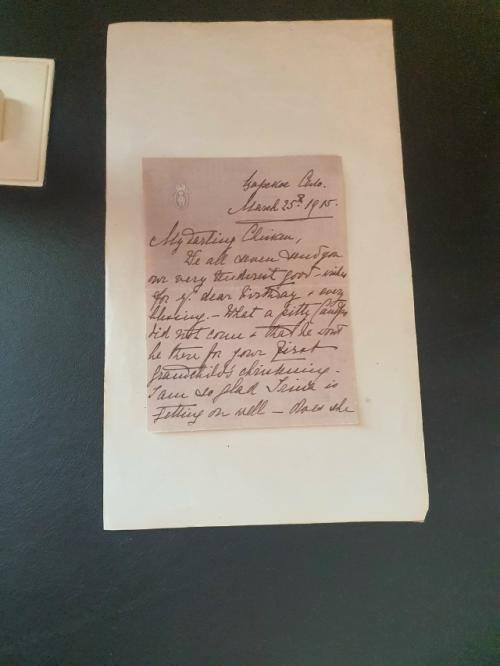 Царское Село.
March 25th 1915.
My darling Chicken,
We all seven send you
our very tenderest good-wishes
for y. dear birthday & every
blessing. - What a pitty
did not come & that he wont
be there for your first
grandchild's christening -
I am so glad Irina is
getting on well - Does she